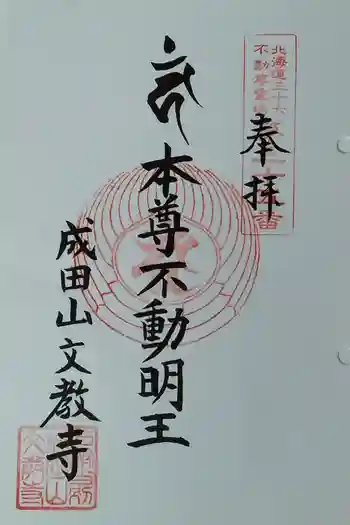 奉拝
北海道三十六
不動尊霊場
本尊不動明王
成田山文教寺